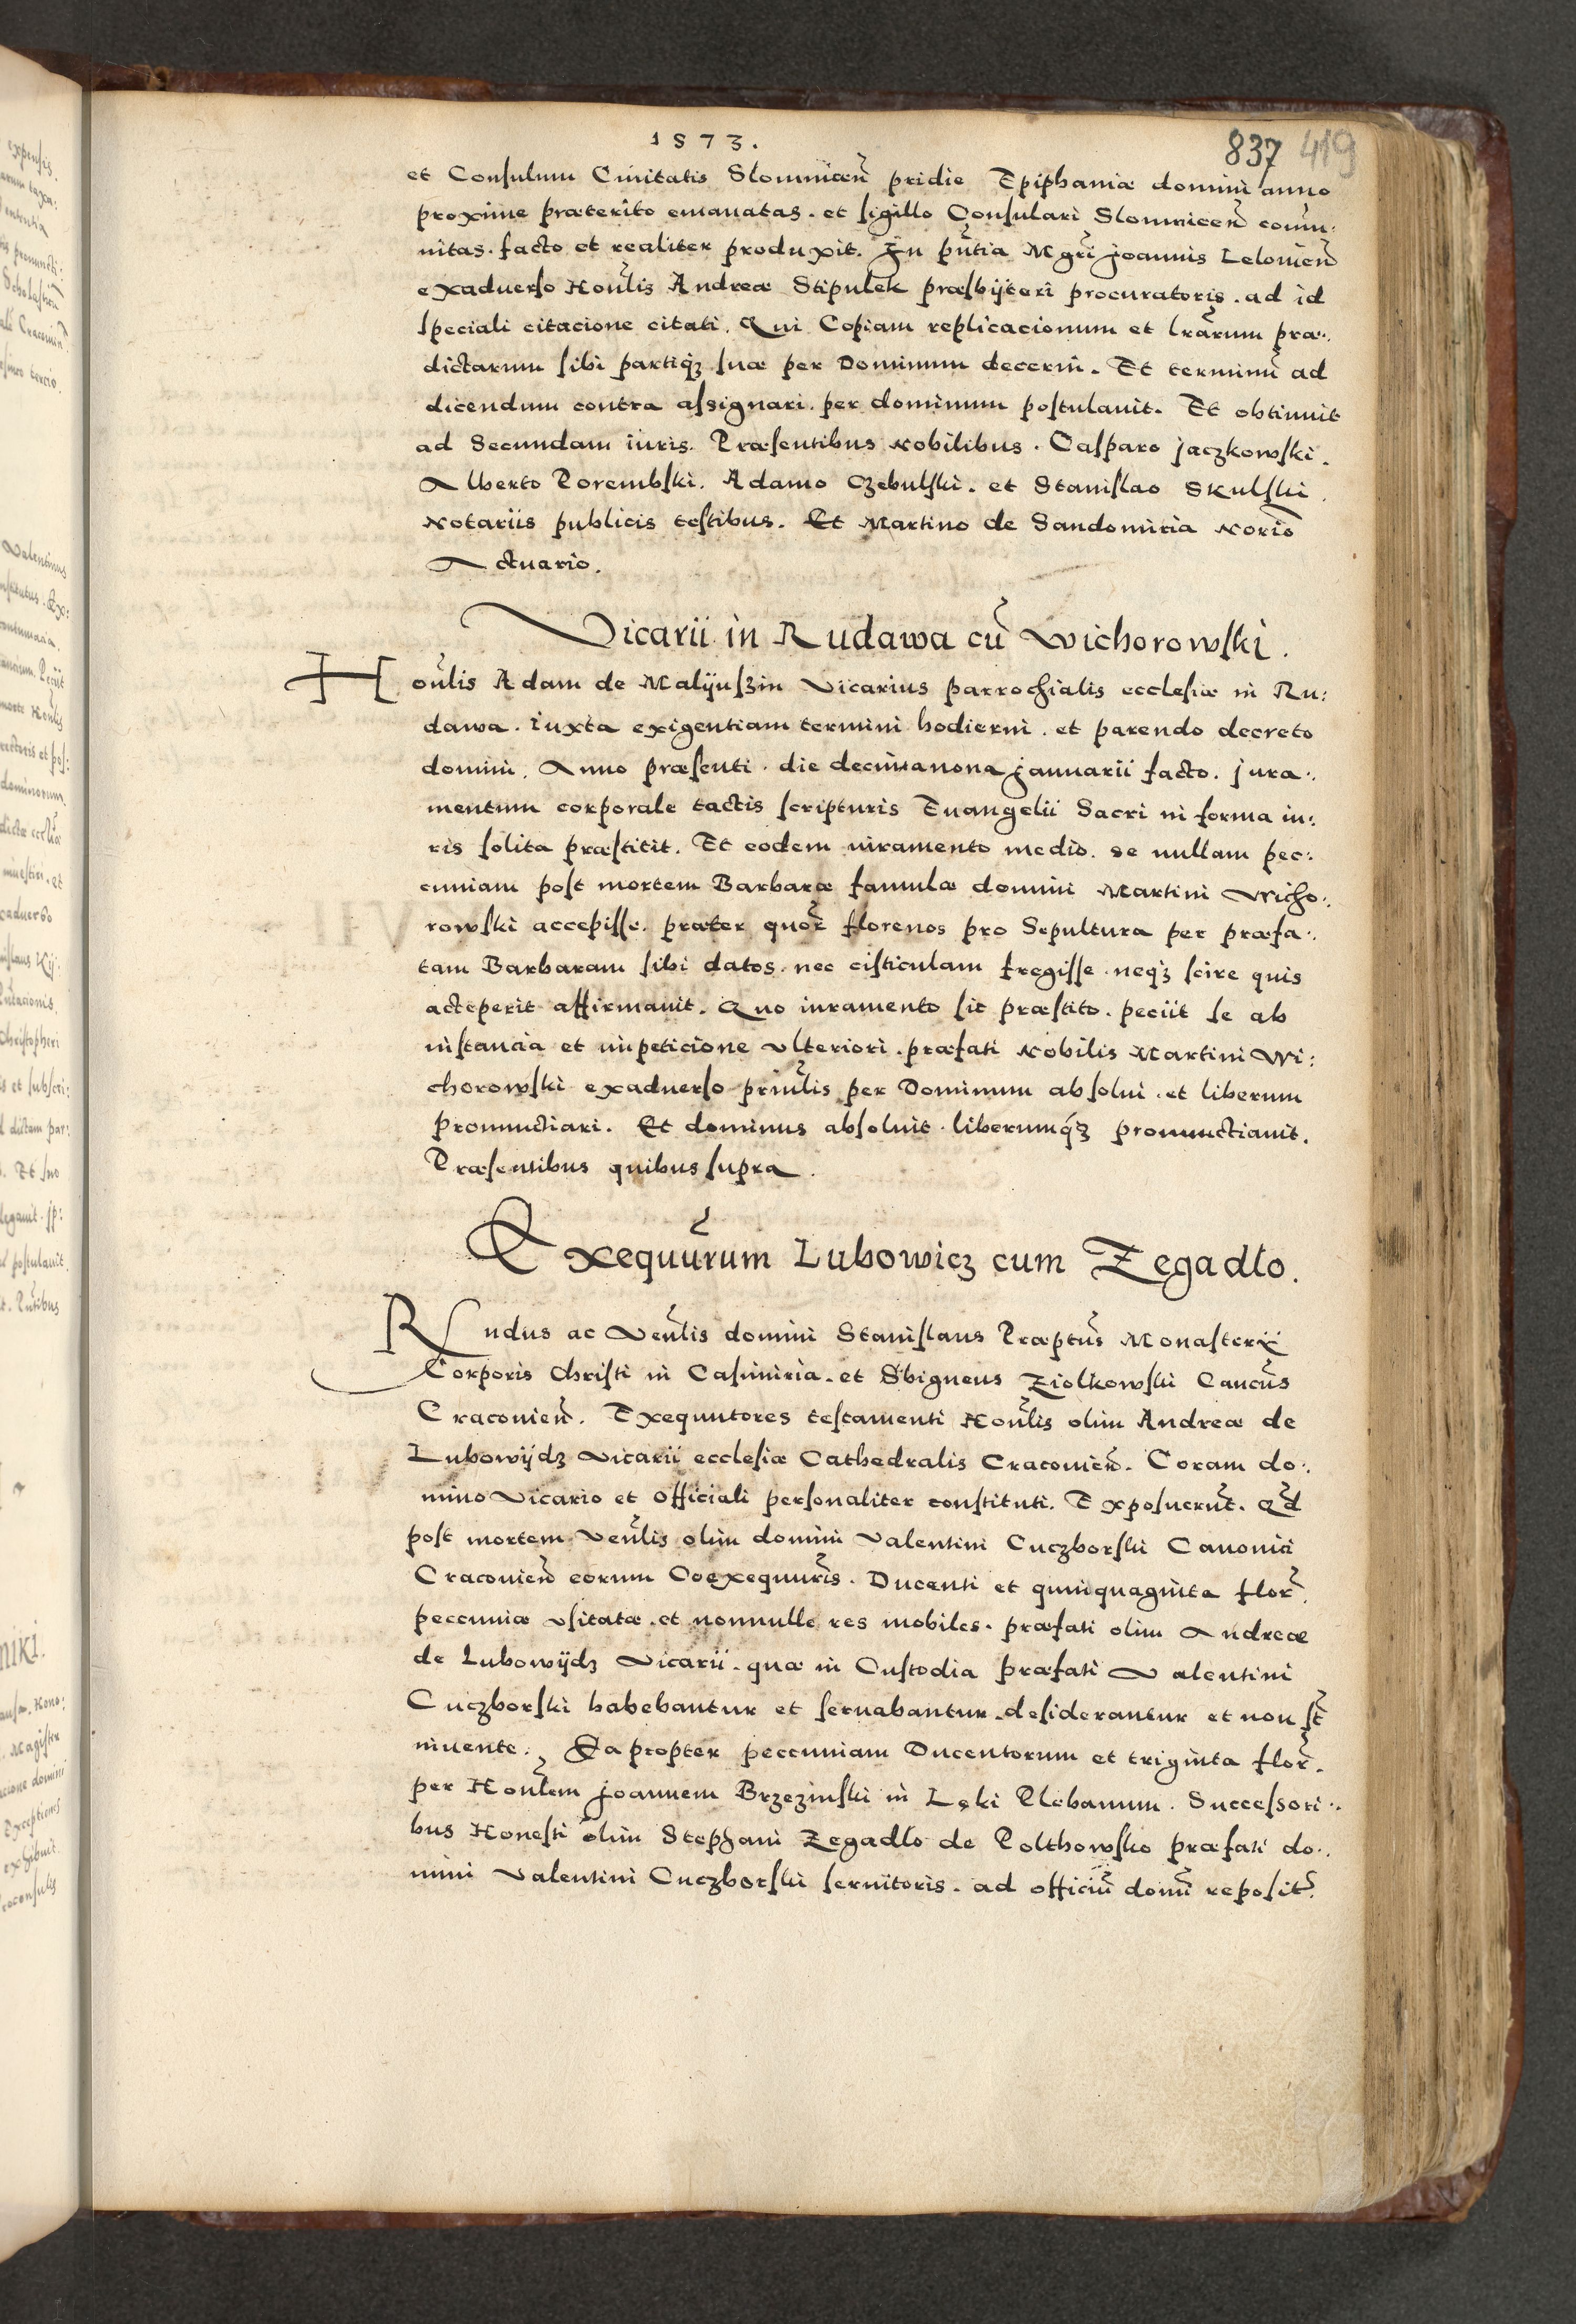 1573.
837 419
et Consulum Ciuitatis Slomnicen̄ pridie Epiphaniæ domini anno
proxime præterito emanatas. et sigillo Consulari Slomnicen̄ com̄u:
nitas. facto et realiter produxit. In pn̄tia Mgrī Joannis Lelouien̄
exaduerso Hon̄lis Andreæ Stipulek præsbÿteri procuratoris. ad id
speciali citacione citati. Qui Copiam replicacionum et lr̄arum præ:
dictarum sibi partiq̨ suæ per Dominum decerni. Et terminū ad
dicendum contra assignari. per dominum postulauit. Et obtinuit
ad Secundam iuris. Præsentibus Nobilibus. Casparo Jaczkowski.
Alberto Porembski. Adamo Czebulski. et Stanislao Skulski.
Notariis publicis testibus. Et Martino de Sandomiria Norīo
Actuario.
Vicarii in Rudawa cū Wichorowski.
Hon̄lis Adam de Malÿuszin Vicarius parrochialis ecclesiæ in Ru:
dawa. iuxta exigentiam termini hodierni. et parendo decreto
domini. Anno præsenti. die decimanona Januarii facto. Jura:
mentum corporale tactis scripturis Euangelii Sacri in forma iu:
ris solita præstitit. Et eodem iuramento medio. se nullam pec:
cuniam post mortem Barbaræ famulæ domini Martini Wicho:
rowski accepisse. præter quor̄ florenos pro Sepultura per præfa:
tam Barbaram sibi datos. nec cisticulam fregisse. neq̨ scire quis
acceperit affirmauit. Quo iuramento sic præstito. peciit se ab
instancia et impeticione vlteriori. præfati Nobilis Martini Wi:
chorowski exaduerso prin̄lis per Dominum absolui. et liberum
pronunctiari. Et dominus absoluit. liberumq̨ pronunctiauit.
Præsentibus quibus supra.
Exequūrum Lubowicz cum Zegadlo.
Rndus ac Ven̄lis domini Stanislaus Præptūs Monasterii
Corporis Christi in Casimiria. et Sbigneus Ziolkowski Cancūs
Cracouien̄. Exequutores testamenti Hon̄lis olim Andreæ de
Lubowÿdz Vicarii ecclesiæ Cathedralis Cracouien̄. Coram do:
mino Vicario et Officiali personaliter constituti. Exposuerūt. Qd̄
post mortem Ven̄lis olim domini Valentini Cuczborski Canonici
Cracouien̄ eorum Coexequur̄is. Ducenti et quinquaginta flor̄.
peccuniæ vsitatæ. et nonnulle res mobiles. præfati olim Andreæ
de Lubowÿdz Vicarii. quæ in Custodia præfati Valentini
Cuczborski habebantur et seruabantur. desiderantur et non st̄
inuente. Eapropter peccuniam Ducentorum et triginta flor̄.
per Hon̄lem Joannem Brzezinski in Lęki Plebanum. Successori:
bus Honesti olim Stephani Zegadlo de Polthowsko præfati do:
mini Valentini Cuczborski seruitoris. ad officiū domī reposit̄.